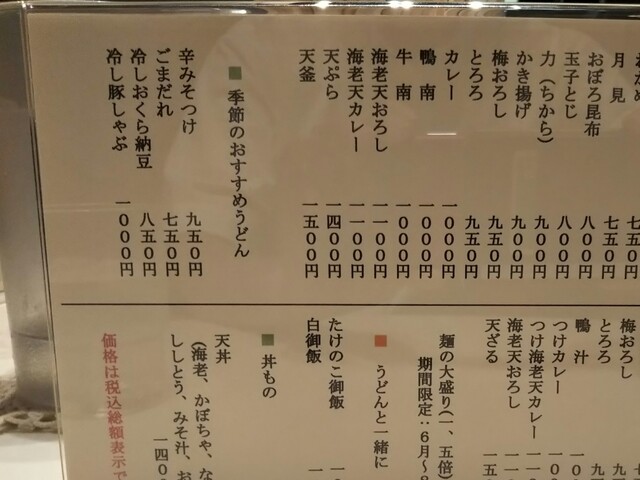 かめ 七五〇円
月見 七五〇円
おぼろ昆布 八〇〇円
玉子とじ 八〇〇円
力(ちから) 九〇〇円
かき揚げ 九〇〇円
梅おろし 九五〇円
とろろ 九五〇円
カレー 一〇〇〇円
鴨南 一〇〇〇円
牛南 一〇〇〇円
海老天おろし 一一〇〇円
海老天カレー 一一〇〇円
天ぷら 一四〇〇円
天釜 一五〇〇円
■ 季節のおすすめうどん
辛みそつけ 九五〇円
ごまだれ 七五〇円
冷しおくら納豆 八五〇円
冷し豚しゃぶ 一〇〇〇円
梅おろし 九五
とろろ 九五
鴨汁 一〇
つけカレー 一〇〇
つけ海老天カレー 一一〇
海老天おろし 一一〇
天ざる 一五
麺の大盛り(一、五倍)
期間限定:6月〜8
■ うどんと一緒に
たけのこ御飯 一
白御飯 一
■ 丼もの
天丼
(海老、かぼちゃ、な
ししとう、みそ汁、お
一四〇〇
価格は税込総額表示で